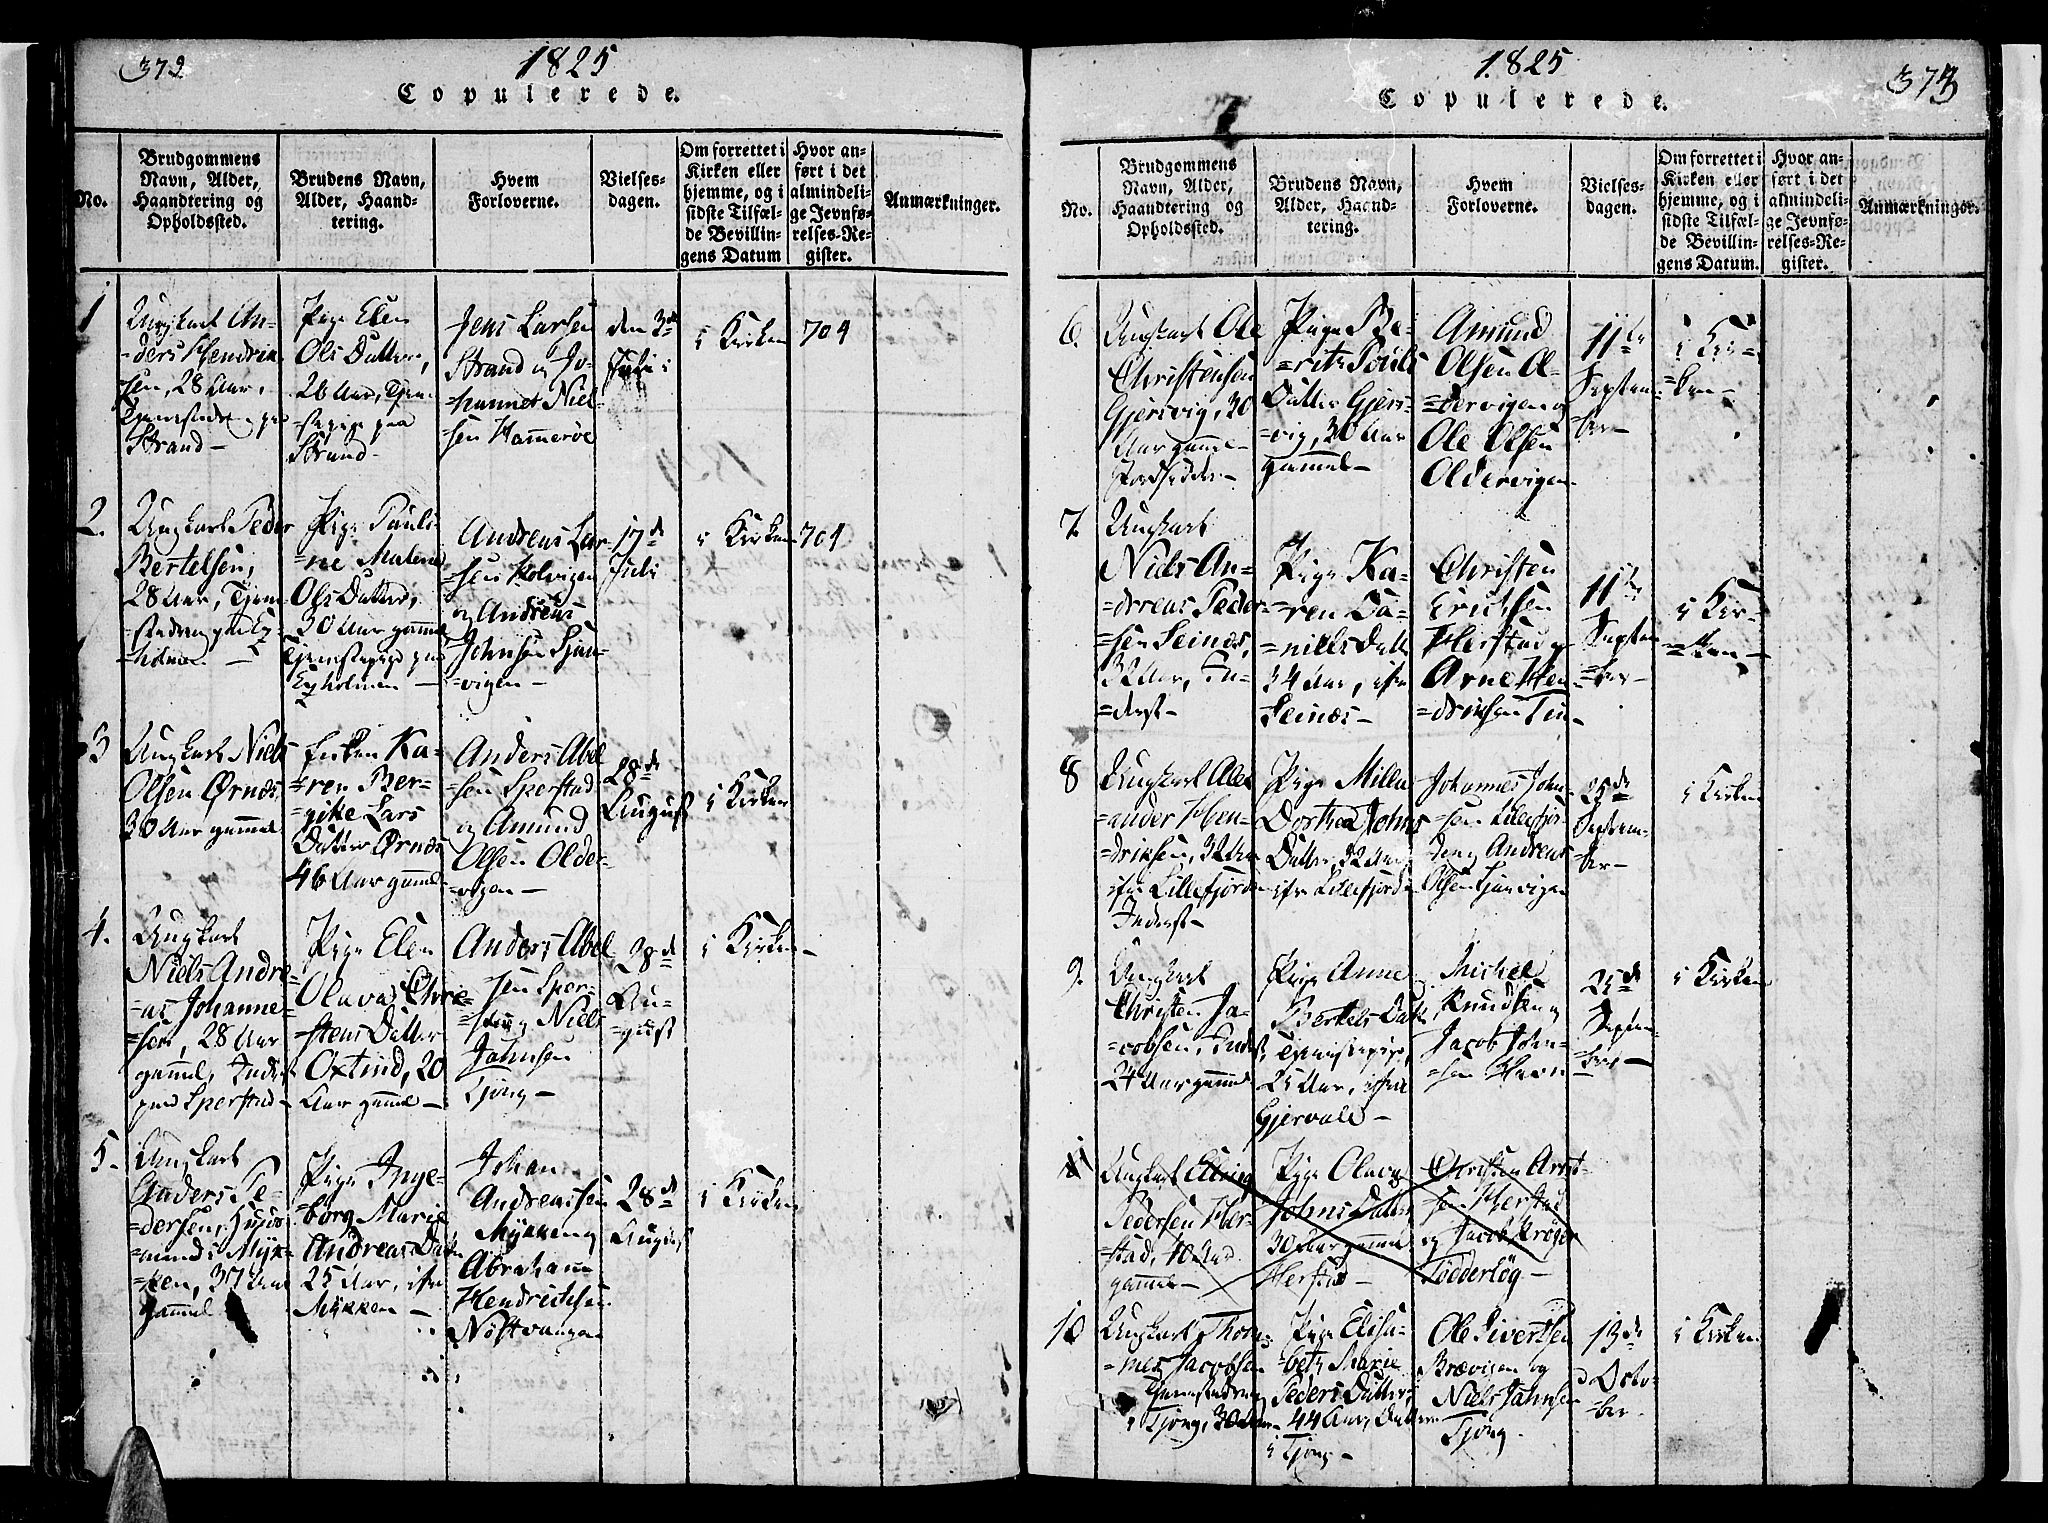 372
1825
Copulerede.
No.
Brudgommens Navn, Alder, Haandtering og Opholdssted.
Brudens Navn, Alder, Haandtering.
Hvem Forloverne.
Vielsesdagen.
Om forrettet i Kirken eller hjemme, og i sidste Tilfælde Bevillingens Datum
Hvor anført i det almindelige Jevnførelses-Register.
Anmærkninger.
1
Ungkarl An-
=ders Hendrik
sen, 28 Aar,
Strand-
Pige Elen
Ols Datter,
26 Aar, Tjene
stepige paa
Strand-
Jens Larsen
Strand og Jo-
hannes Niel-
sen Hammerøe
den 3de
Juli
i Kirken
704
2.
Ungkarl Peder
Bertelsen,
28 Aar, Tjene
=holmen-
Pige Pauli-
ne Malene
Ols Datter,
30 Aar gammel
Tjenestepige paa
Eyholmen-
Andreas Lar
=sen Kolvigen
og Andreas
Johnsen Sjau-
=vigen-
17de
Juli
i Kirken
704
3
Ungkarl Niels
Olsen Ørnæs,
30 Aar gammel
Enken Ka-
=ren Ber-
=gitte Lars
Datter Ørnæs
46 Aar gammel-
Anders Abel
=sen Sperstad
og Amund
Olsen Older-
=vigen-
28de
August
i Kirken
4.
Ungkarl
Niels Andre-
=as Johanne-
=sen, 28 Aar
gammel, Inderst
paa Sperstad-
Pige Elen
Olava Chri-
=stens Datter
Oxtind, 20
Aar gammel-
Anders Abel
=sen Sper-
=stad og Niels
Jahnsen
Tjong-
28de
Au-
=gust
i Kirken-
5.
Ungkarl
Anders Pe-
=dersen, Huus-
=mand i Myk-
=ken, 37 Aar
gammel
Pige Inge-
=borg Marie
Andreas Datter
25 Aar, ifra
Mykken-
Johan
Andreassen
Mykken og
Abraham
Hendrichsen
Nøstvaagen
28de
August
i Kirken
1825
373
Copulerede.
No.
Brudgommens Navn, Alder, Haandtering og Opholdssted.
Brudens Navn, Alder, Haandtering.
Hvem Forloverne.
Vielsesdagen.
Om forrettet i Kirken eller hjemme, og i sidste Tilfælde Bevillingens Datum.
Hvor anført i det almindelige Jevnførelses-Register.
Anmærkninger.
6.
Ungkarl Ole
Christensen
Gjersvig, 30
Aar gammel-
Pige Be-
=rith Pouls
Datter Gjers-
=vig, 30 Aar
gammel-
Amund
Olsen Ol-
=dervigen og
Ole Olsen
Oldervigen
11te
Septem-
=ber-
i Kir-
=ken-
7.
Ungkarl
Niels An-
=dreas Peder-
=sen Seinæs,
32 Aar, In-
=derst-
Pige Ka-
=ren Da-
=niels Datter
34 Aar, ifra
Seinæs-
Christen
Erichsen
Herstad og
Arne Hen
=driksen
11te
Septem
=ber-
i Kir-
=ken-
8
Ungkarl Alex
=ander Hen-
=driksen, 32 Aar
ifra Lillefjorden
Inderst-
Pige Milla
Dorthea Johns
Datter, 32 Aar
ifra Lillefjorden
Johannes John
=sen Lillefjor-
=den og Andreas
Olsen Sjauvigen
25de
Septem-
=ber-
i Kirken
9.
Ungkarl
Christen Ja-
=cobsen, Inderst
24 Aar gammel
Pige Anne
Bertels Datter
Tjenestepige,
25 Aar, ifra
Gjervale-
Michel
Knudsen og
Jacob John-
=sen Havn
25de
Septem-
=ber-
i Kirken
Ungkarl Elling
Pedersen Her-
=stad, 40 Aar
gammel-
Pige Olava
Johns Datter
30 Aar gammel
Herstad-
Christen Arnt-
sen Herstad
og Jacob Krøger
Tødderløg-
10
Ungkarl Thom-
=mes Jacobsen
i Tjong, 30 Aar-
Pige Elisa-
=beth Marie
Peders Datter,
44 Aar, Datter
i Tjong-
Ole Sivertsen
Brævigen og
Niels Jahnsen
Tjong
13de
Octo-
=ber
i Kirken